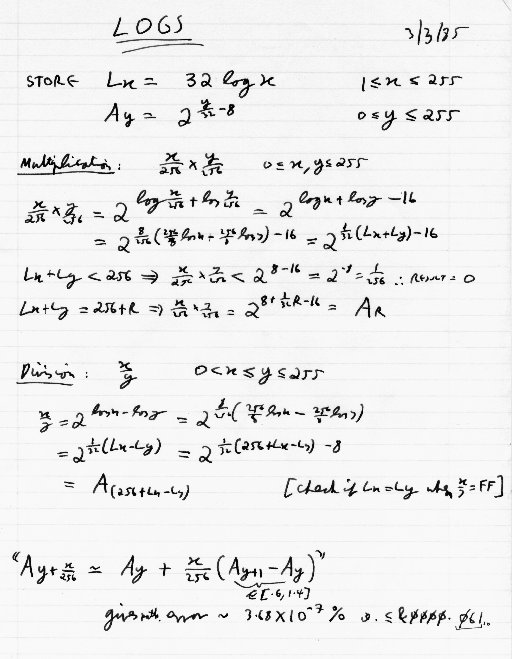 LOGS
3/3/85
STORE Lx = 32 log x 1 ≤ x ≤ 255
Ay = 2^(y/32 - 8) 0 ≤ y ≤ 255
Multiplication: x/256 × y/256 0 ≤ x, y ≤ 255
x/256 × y/256 = 2^(log x/256 + log y/256) = 2^(log x + log y - 16)
= 2^(8/256 (256/8 log x + 256/8 log y) - 16) = 2^(1/32 (Lx+Ly) - 16)
Lx+Ly < 256 ⇒ x/256 × y/256 < 2^(8-16) = 2^-8 = 1/256 ∴ RESULT = 0
Lx+Ly = 256+R ⇒ x/256 × y/256 = 2^(8 + 1/32 R - 16) = A_R
Division: x/y 0 < x ≤ y ≤ 255
x/y = 2^(log x - log y) = 2^(8/256 (256/8 log x - 256/8 log y))
= 2^(1/32 (Lx-Ly)) = 2^(1/32 (256+Lx-Ly) - 8)
= A(256+Lx-Ly) [check if Lx=Ly when x/y = FF]
"Ay+x/256 ≃ Ay + x/256 (Ay+1 - Ay)"
∈[.6, 1.4]
gives with error ~ 3.68×10^-7 % ≤